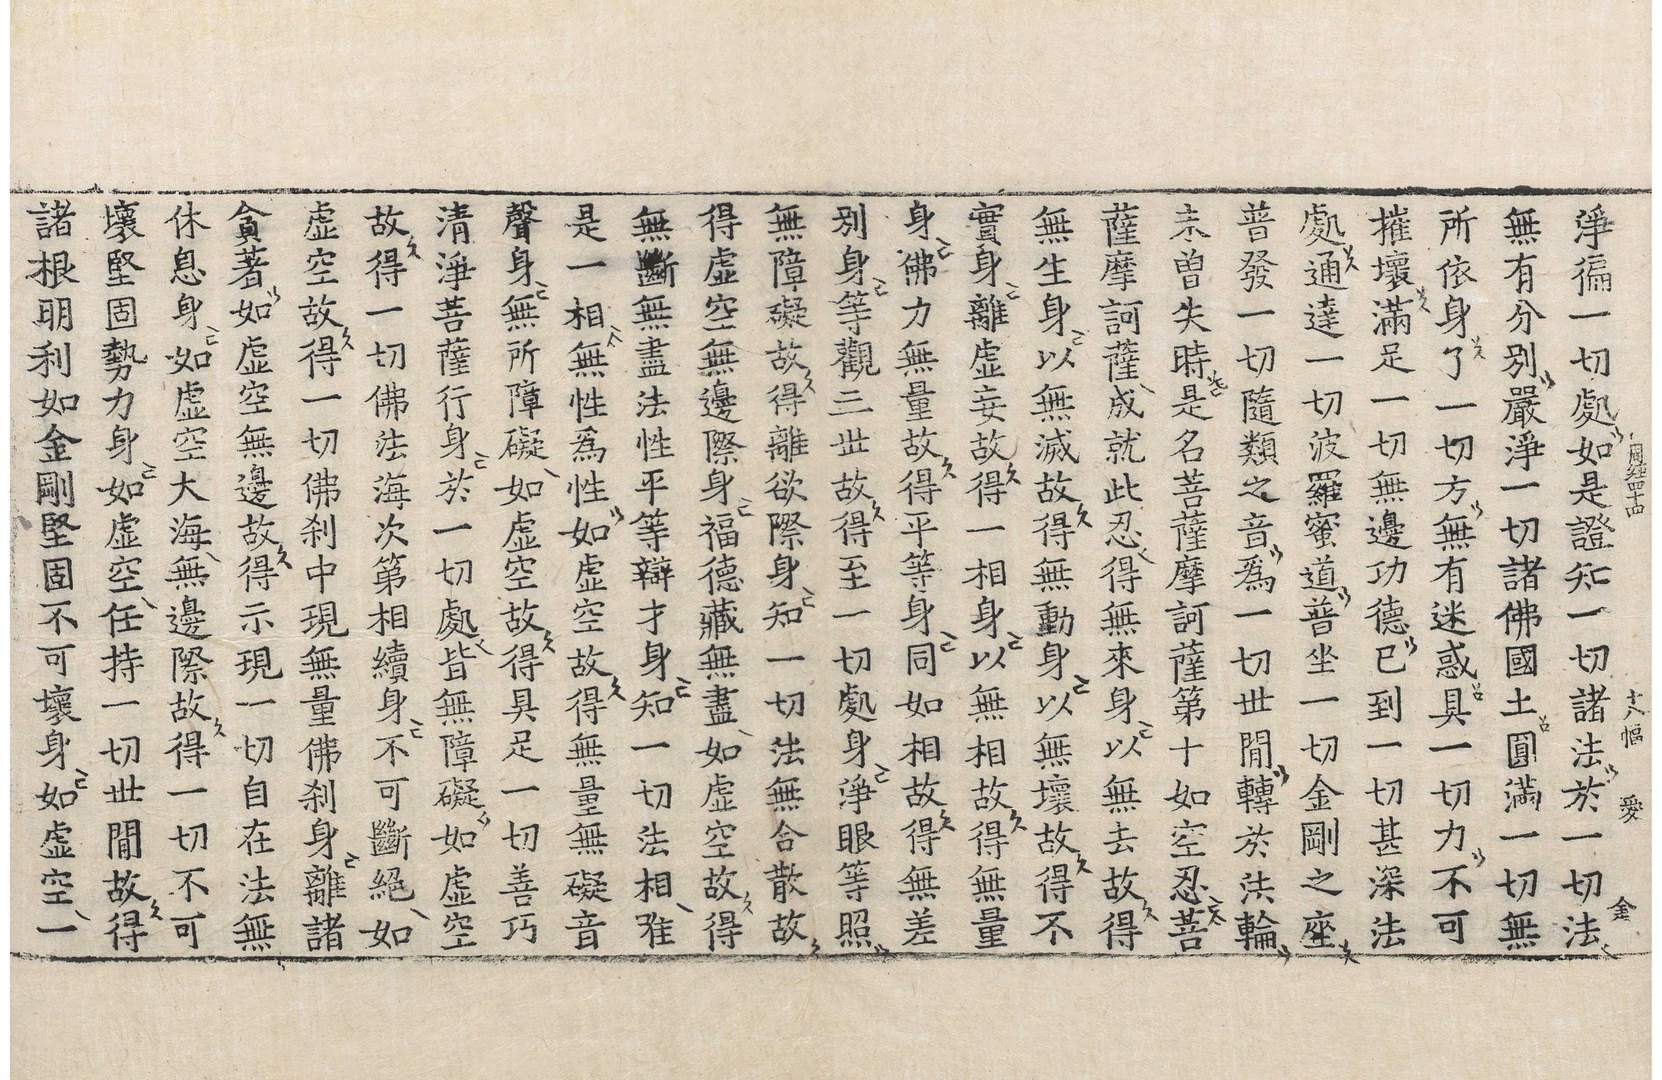 周経四十四 十八幅 愛 金
淨徧一切處如是證知一切諸法於一切法
無有分別嚴淨一切諸佛國土圓滿一切無
所依身了一切方無有迷惑具一切力不可
摧壞滿足一切無邊功德已到一切甚深法
處通達一切波羅蜜道普坐一切金剛之座
普發一切隨類之音爲一切世間轉於法輪
未曾失時是名菩薩摩訶薩第十如空忍菩
薩摩訶薩成就此忍得無來身以無去故得
無生身以無滅故得無動身以無壞故得不
實身離虛妄故得一相身以無相故得無量
身佛力無量故得平等身同如相故得無差
別身等觀三世故得至一切處身淨眼等照
無障礙故得離欲際身知一切法無合散故
得虛空無邊際身福德藏無盡如虛空故得
無斷無盡法性平等辯才身知一切法相唯
是一相無性爲性如虛空故得無量無礙音
聲身無所障礙如虛空故得具足一切善巧
清淨菩薩行身於一切處皆無障礙如虛空
故得一切佛法海次第相續身不可斷絕如
虛空故得一切佛刹中現無量佛刹身離諸
貪著如虛空無邊故得示現一切自在法無
休息身如虛空大海無邊際故得一切不可
壞堅固勢力身如虛空任持一切世間故得
諸根明利如金剛堅固不可壞身如虛空一